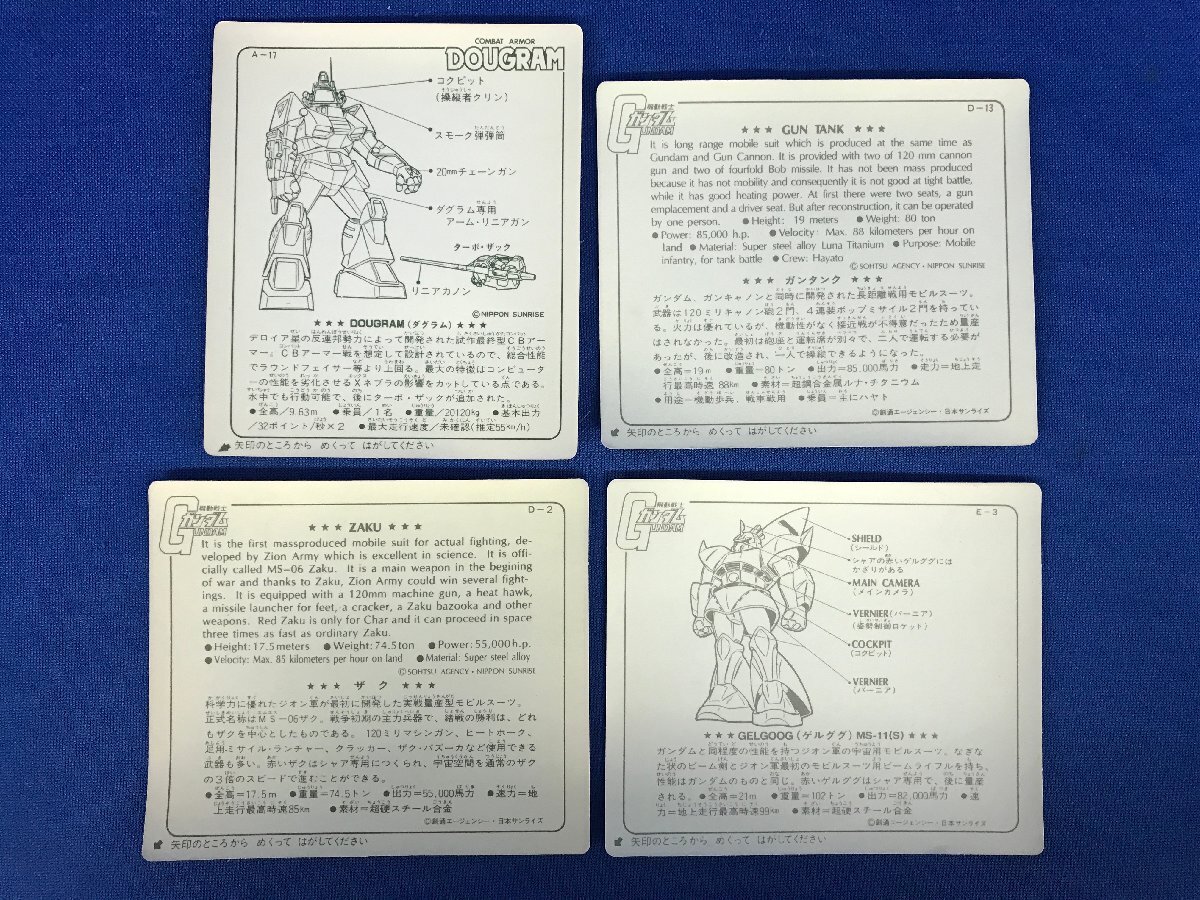 A-17
COMBAT ARMOR
DOUGRAM
コクピット
(操縦者クリン)
スモーク弾弾筒
20mmチェーンガン
ダグラム専用
アーム・リニアガン
ターボ・ザック
リニアカノン
©NIPPON SUNRISE
★★★ DOUGRAM(ダグラム) ★★★
デロイア星の反連邦勢力によって開発された試作最終型CBアー
マー。CBアーマー戦を想定して設計されているので、総合性能
でラウンドフェイサー等より上回る。最大の特徴はコンピュータ
ーの性能を劣化させるXネブラの影響をカットしている点である。
水中でも行動可能で、後にターボ・ザックが追加された。
●全高/9.63m ●乗員/1名 ●重量/20120kg ●基本出力
/32ポイント/秒×2 ●最大走行速度/未確認(推定55km/h)
矢印のところから めくって はがしてください
機動戦士
ガンダム
GUNDAM
D-13
★★★ GUN TANK ★★★
It is long range mobile suit which is produced at the same time as
Gundam and Gun Cannon. It is provided with two of 120 mm cannon
gun and two of fourfold Bob missile. It has not been mass produced
because it has not mobility and consequently it is not good at tight battle,
while it has good heating power. At first there were two seats, a gun
emplacement and a driver seat. But after reconstruction, it can be operated
by one person. ●Height: 19 meters ●Weight: 80 ton
●Power: 85,000 h.p. ●Velocity: Max. 88 kilometers per hour on
land ●Material: Super steel alloy Luna Titanium ●Purpose: Mobile
infantry, for tank battle ●Crew: Hayato
©SOHTSU AGENCY・NIPPON SUNRISE
★★★ ガンタンク ★★★
ガンダム、ガンキャノンと同時に開発された長距離戦用モビルスーツ。
武器は120ミリキャノン砲2門、4連装ポップミサイル2門を持ってい
る。火力は優れているが、機動性がなく接近戦が不得意だったため量産
はされなかった。最初は砲座と運転席が別々で、二人で運転する必要が
あったが、後に改造され、一人で操縦できるようになった。
●全高=19m ●重量=80トン ●出力=85,000馬力 ●走力=地上走
行最高時速 88km ●素材=超鋼合金属ルナ・チタニウム
●用途=機動歩兵、戦車戦用 ●乗員=主にハヤト
©創通エージェンシー・日本サンライズ
矢印のところから めくって はがしてください
機動戦士
ガンダム
GUNDAM
D-2
★★★ ZAKU ★★★
It is the first massproduced mobile suit for actual fighting, de-
veloped by Zion Army which is excellent in science. It is offi-
cially called MS-06 Zaku. It is a main weapon in the begining
of war and thanks to Zaku, Zion Army could win several fight-
ings. It is equipped with a 120mm machine gun, a heat hawk,
a missile launcher for feet, a cracker, a Zaku bazooka and other
weapons. Red Zaku is only for Char and it can proceed in space
three times as fast as ordinary Zaku.
●Height: 17.5meters ●Weight: 74.5ton ●Power: 55,000h.p.
●Velocity: Max. 85 kilometers per hour on land ●Material: Super steel alloy
©SOHTSU AGENCY・NIPPON SUNRISE
★★★ ザク ★★★
科学力に優れたジオン軍が最初に開発した実戦量産型モビルスーツ。
正式名称はMS-06ザク。戦争初期の主力兵器で、緒戦の勝利は、どれ
もザクを中心としたものである。120ミリマシンガン、ヒートホーク、
足用ミサイル・ランチャー、クラッカー、ザク・バズーカなど使用できる
武器も多い。赤いザクはシャア専用につくられ、宇宙空間を通常のザク
の3倍のスピードで進むことができる。
●全高=17.5m ●重量=74.5トン ●出力=55,000馬力 ●速力=地
上走行最高時速85km ●素材=超硬スチール合金
©創通エージェンシー・日本サンライズ
矢印のところから めくって はがしてください
機動戦士
ガンダム
GUNDAM
E-3
SHIELD
(シールド)
シャアの赤いゲルググには
かざりがある
MAIN CAMERA
(メインカメラ)
VERNIER(バーニア)
(姿勢制御ロケット)
COCKPIT
(コクピット)
VERNIER
(バーニア)
★★★ GELGOOG(ゲルググ) MS-11(S) ★★★
ガンダムと同程度の性能を持つジオン軍の宇宙用モビルスーツ。なぎな
た状のビーム剣とジオン軍最初のモビルスーツ用ビームライフルを持ち、
性能はガンダムのものと同じ。赤いゲルググはシャア専用で、後に量産
される。●全高=21m ●重量=102トン ●出力=82,000馬力 ●速
力=地上走行最高時速99km ●素材=超硬スチール合金
©創通エージェンシー・日本サンライズ
矢印のところから めくって はがしてください